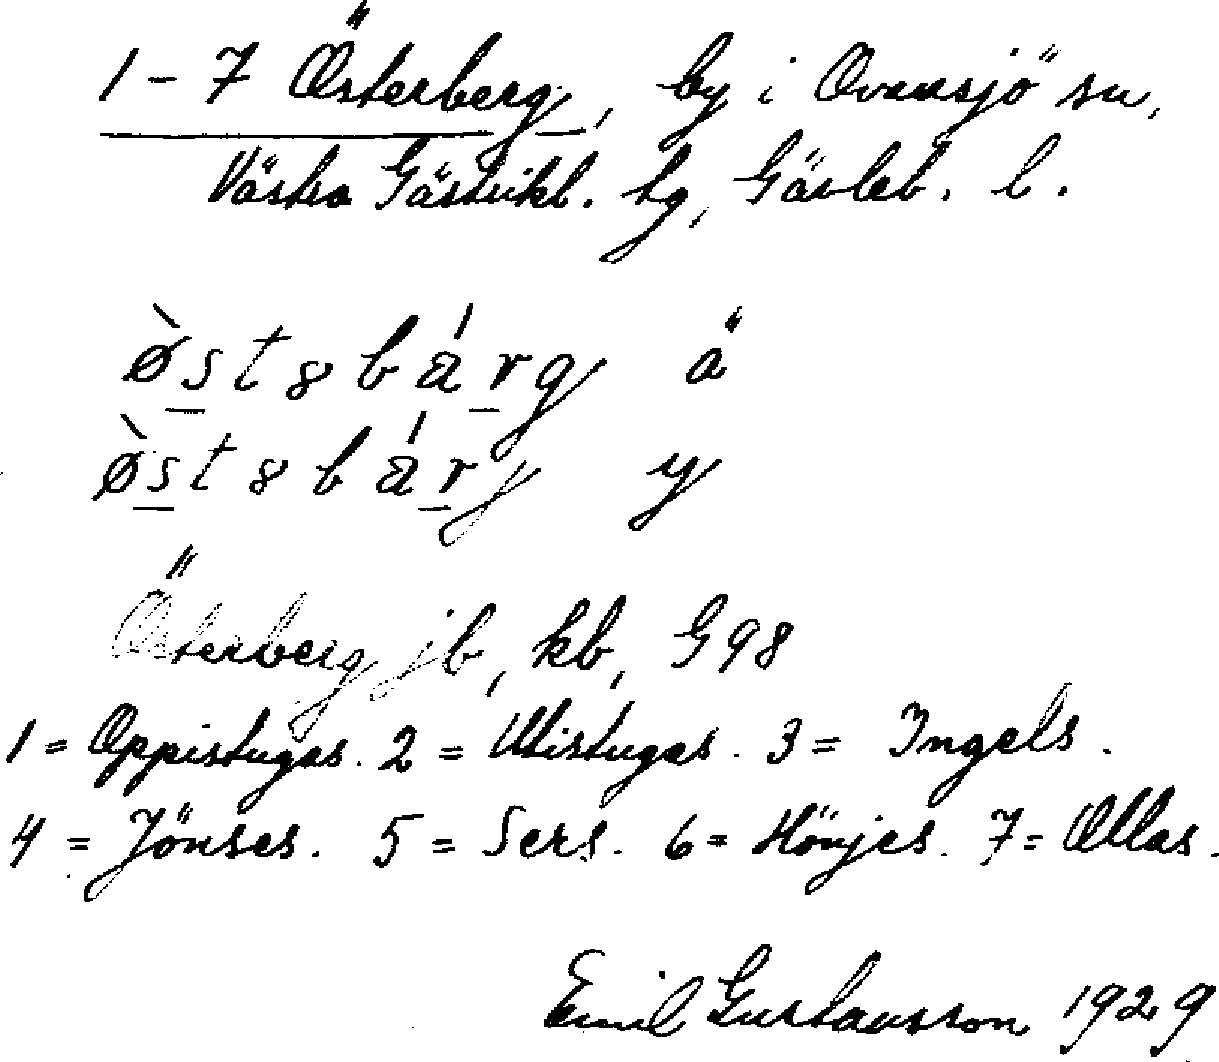 1 - 7 Österberg, by i Ovansjö sn,
Västra Gästrikl. tg, Gävleb. l.
ø̀st8bárg ä
ø̀st8bárj y
Österberg jb, kb, G98
1 = Oppistugas. 2 = Utistugas. 3 = Ingels.
4 = Jönses. 5 = Sers. 6 = Hönjes. 7 = Ollas.
Emil Gustavsson 1929